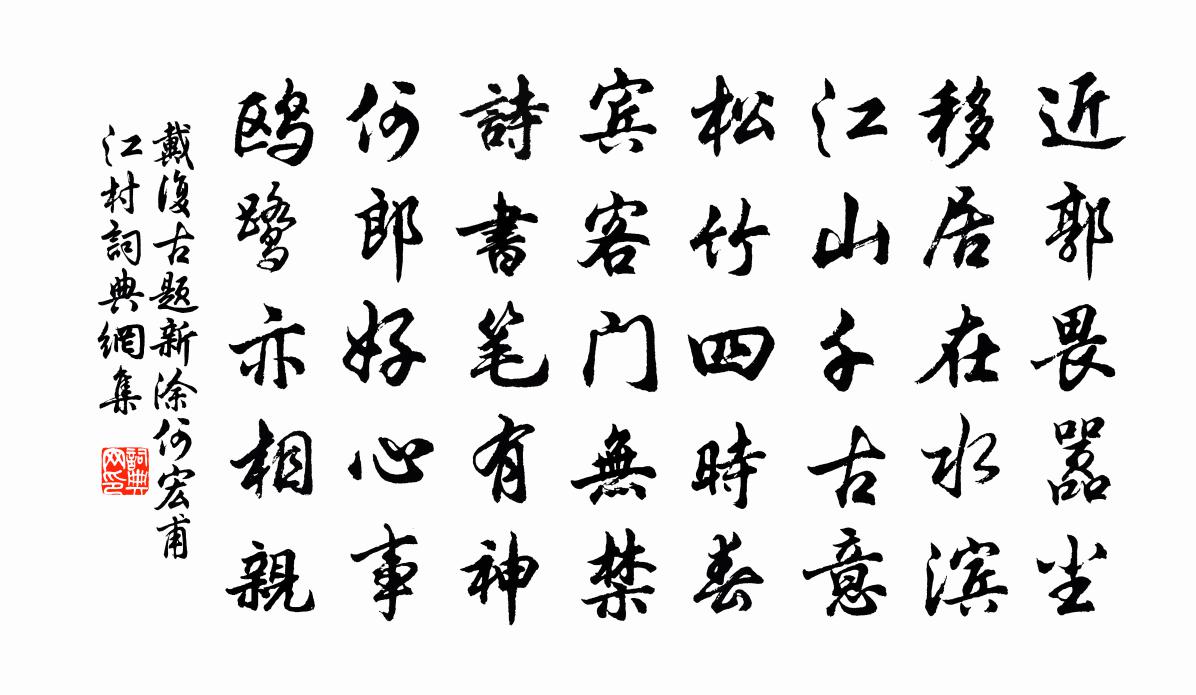 近郭畏嚣尘
移居在水滨
江山千古意
松竹四時春
宾客门無禁
詩書笔有神
何郎好心事
鸥鹭亦相親
戴復古题新涂何宏甫
江村詞典網集
詞典网印